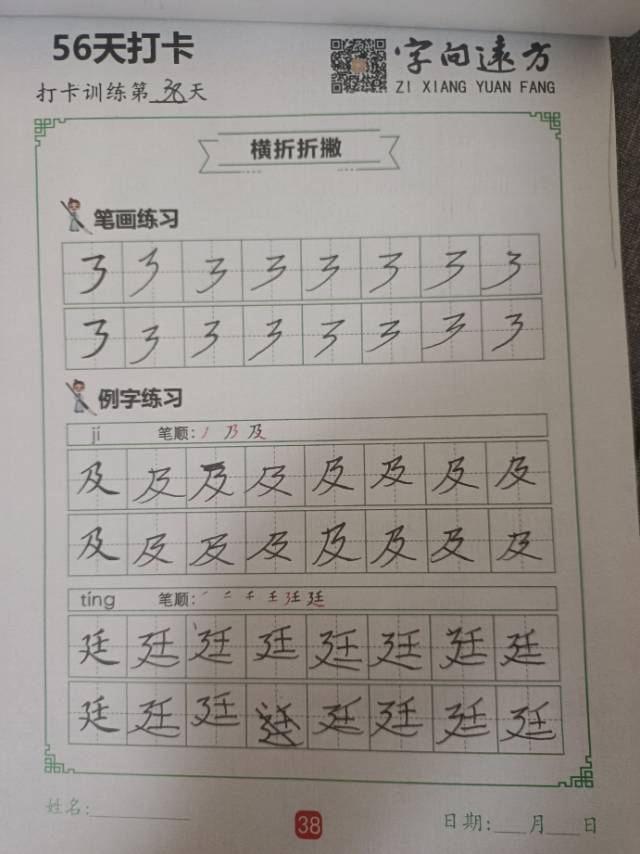 56天打卡
字向远方
打卡训练第38天
ZI XIANG YUAN FANG
横折折撇
笔画练习
例字练习
jí 笔顺: 丿 乃 及
及 及 及 及 及 及 及 及
及 及 及 及 及 及 及 及
tíng 笔顺:
廷 廷 廷 廷 廷 廷 廷 廷
廷 廷 廷 廷 廷 廷 廷
姓名:
38
日期: 月 日